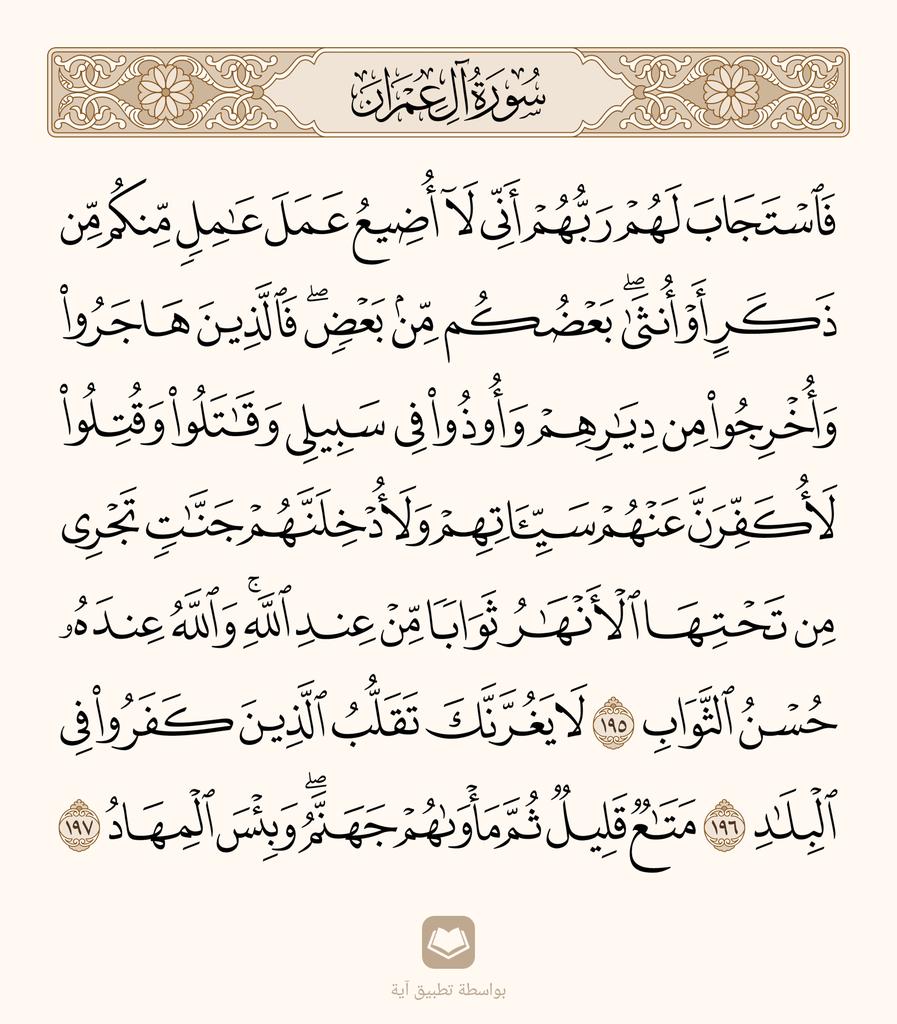 سُورَةُ آلِ عِمۡرَان
فَٱسۡتَجَابَ لَهُمۡ رَبُّهُمۡ أَنِّي لَآ أُضِيعُ عَمَلَ عَٰمِلٖ مِّنكُم مِّن
ذَكَرٍ أَوۡ أُنثَىٰۖ بَعۡضُكُم مِّنۢ بَعۡضٖۖ فَٱلَّذِينَ هَاجَرُواْ
وَأُخۡرِجُواْ مِن دِيَٰرِهِمۡ وَأُوذُواْ فِي سَبِيلِي وَقَٰتَلُواْ وَقُتِلُواْ
لَأُكَفِّرَنَّ عَنۡهُمۡ سَيِّـَٔاتِهِمۡ وَلَأُدۡخِلَنَّهُمۡ جَنَّٰتٖ تَجۡرِي
مِن تَحۡتِهَا ٱلۡأَنۡهَٰرُ ثَوَابٗا مِّنۡ عِندِ ٱللَّهِۚ وَٱللَّهُ عِندَهُۥ
حُسۡنُ ٱلثَّوَابِ ١٩٥ لَا يَغُرَّنَّكَ تَقَلُّبُ ٱلَّذِينَ كَفَرُواْ فِي
ٱلۡبِلَٰدِ ١٩٦ مَتَٰعٞ قَلِيلٞ ثُمَّ مَأۡوَىٰهُمۡ جَهَنَّمُۖ وَبِئۡسَ ٱلۡمِهَادُ ١٩٧
بواسطة تطبيق آية